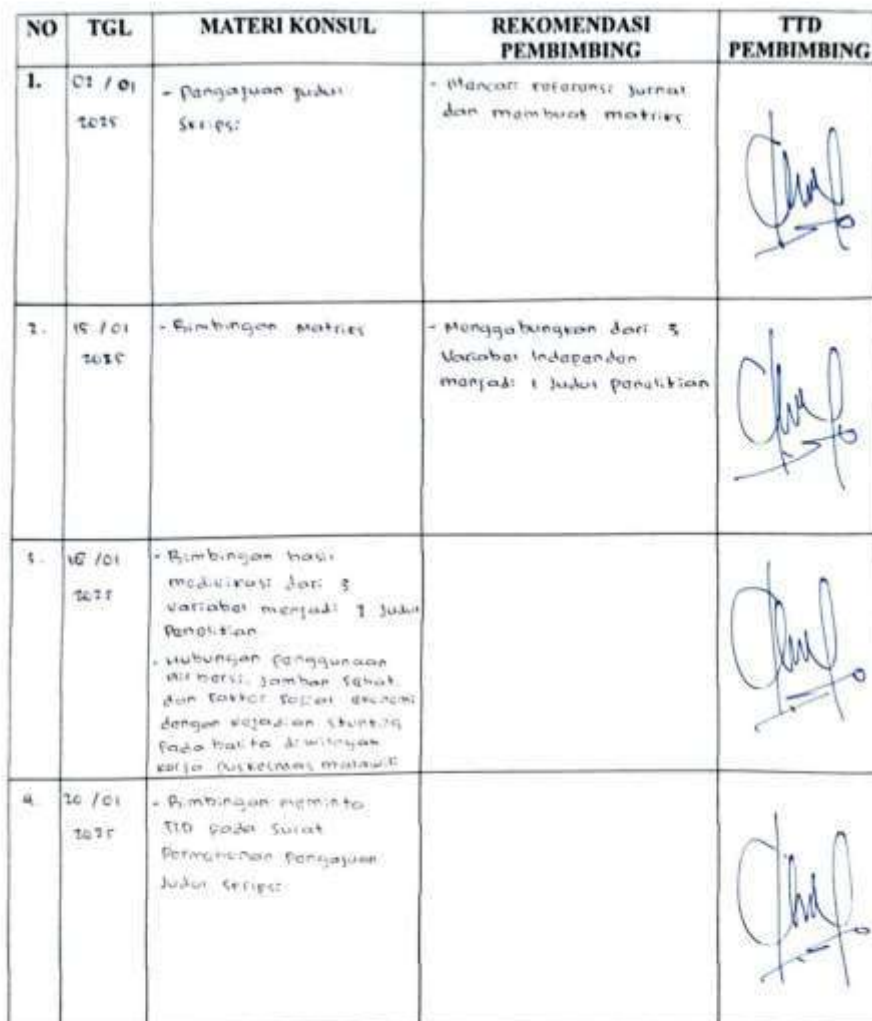 NO TGL MATERI KONSUL REKOMENDASI PEMBIMBING TTD PEMBIMBING
1. 02 / 01 2025
- Pengajuan judul
Skripsi
- Mencari referensi Jurnal
dan membuat matriks
2. 15 / 01 2025
- Bimbingan Matriks
- Menggabungkan dari 3
Variabel Independen
menjadi 1 Judul penelitian
3. /01 2025
- Bimbingan hasil
modivikasi dari 3
variabel menjadi 1 Judul
Penelitian
- Hubungan penggunaan
air bersi, Jamban Sehat
dan faktor sosial ekonomi
dengan kejadian stunting
Pada balita diwilayah
kerja puskesmas
4. 20 / 01 2025
- Bimbingan meminta
TTD pada Surat
Permohonan Pengajuan
Judul Skripsi